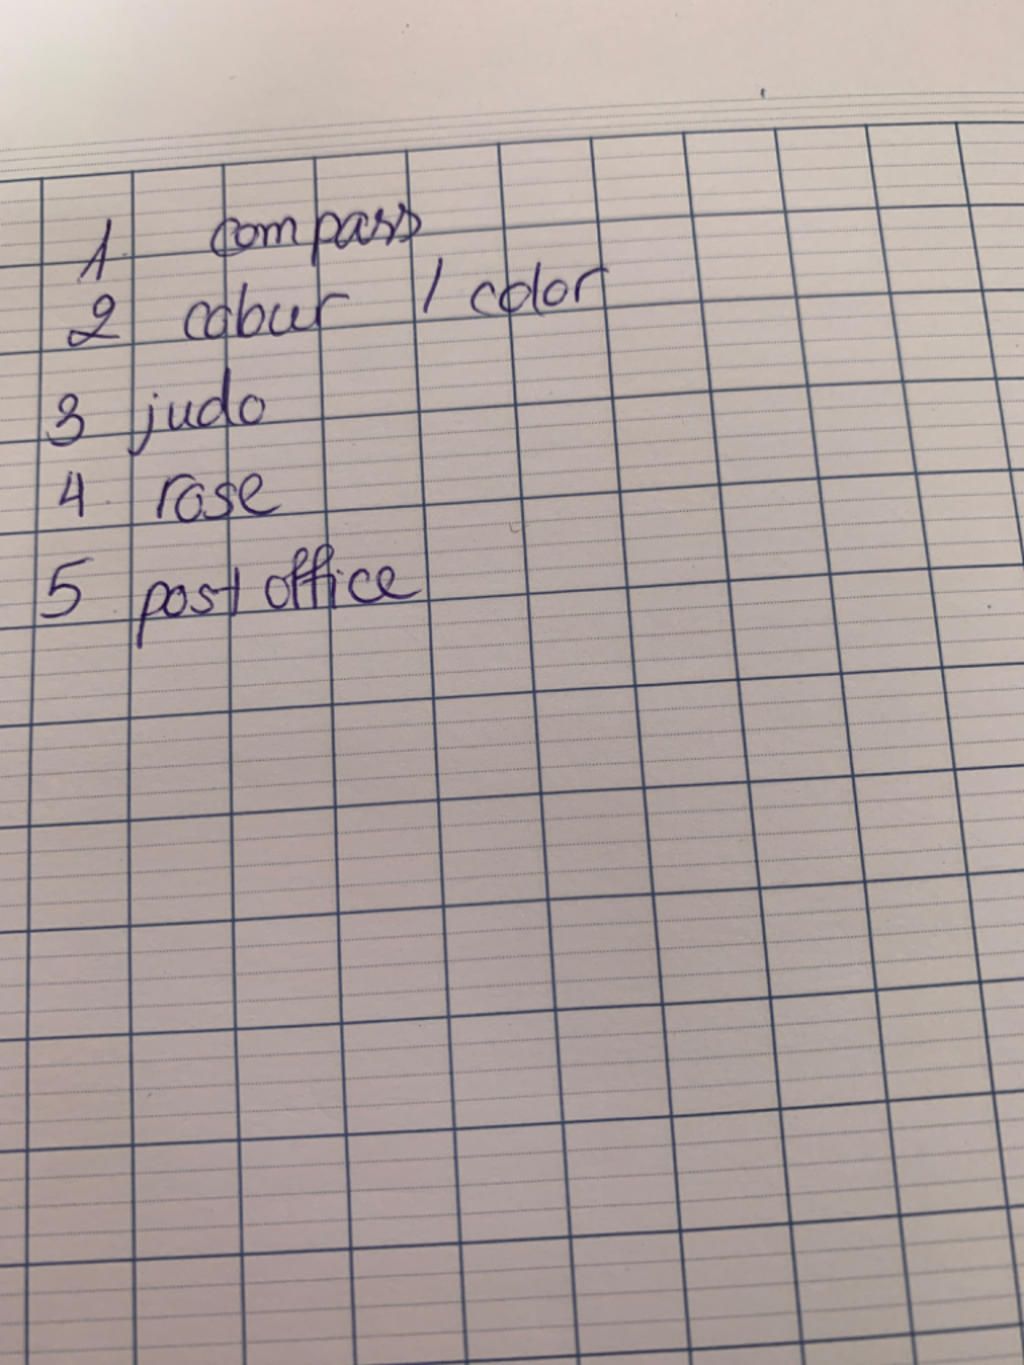 1 compass
2 colour / color
3 judo
4 rose
5 post office